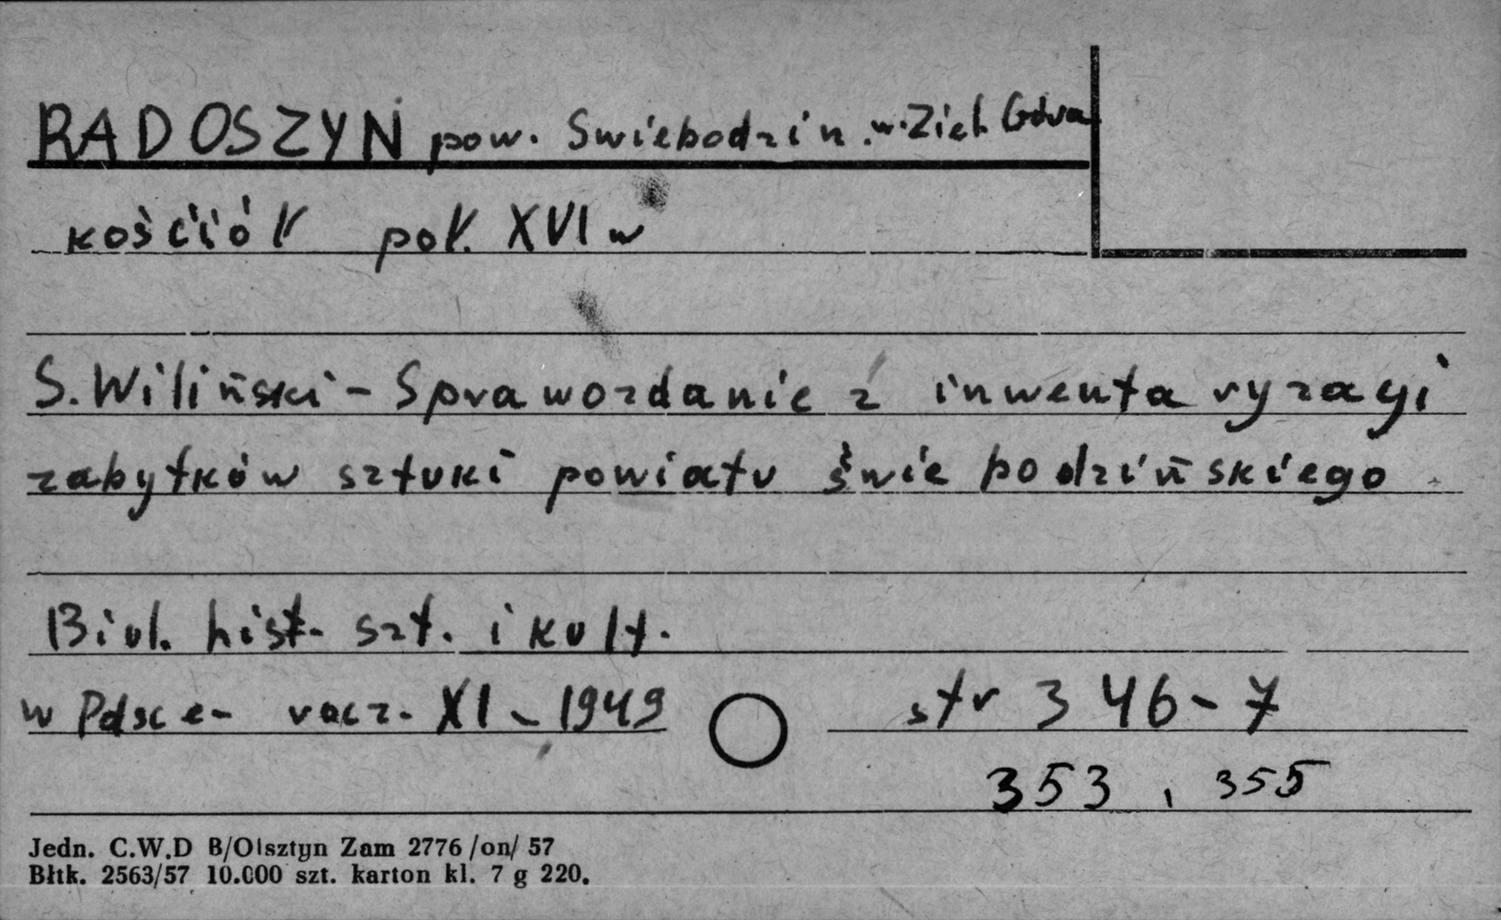 RADOSZYN pow. Swiebodzin. w. Ziel. Góra
kośćiół poł. XVI w
S. Wiliński - Sprawozdanie z inwentaryzacji
zabytków sztuki powiatu świebodzińskiego
Biul. hist. szt. i kult.
w Polsce - rocz. XI - 1949 str 346-7
353, 355
Jedn. C.W.D B/Olsztyn Zam 2776 /on/ 57
Błtk. 2563/57 10.000 szt. karton kl. 7 g 220.